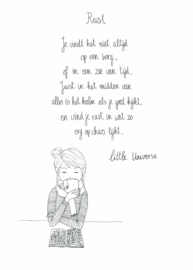 Rust
Je vindt het niet altijd
op een berg,
of in een zee van tijd.
Juist in het midden van
alles is het kalm als je goed kijkt,
en vind je rust in wat zo
erg op chaos lijkt.
little Universe